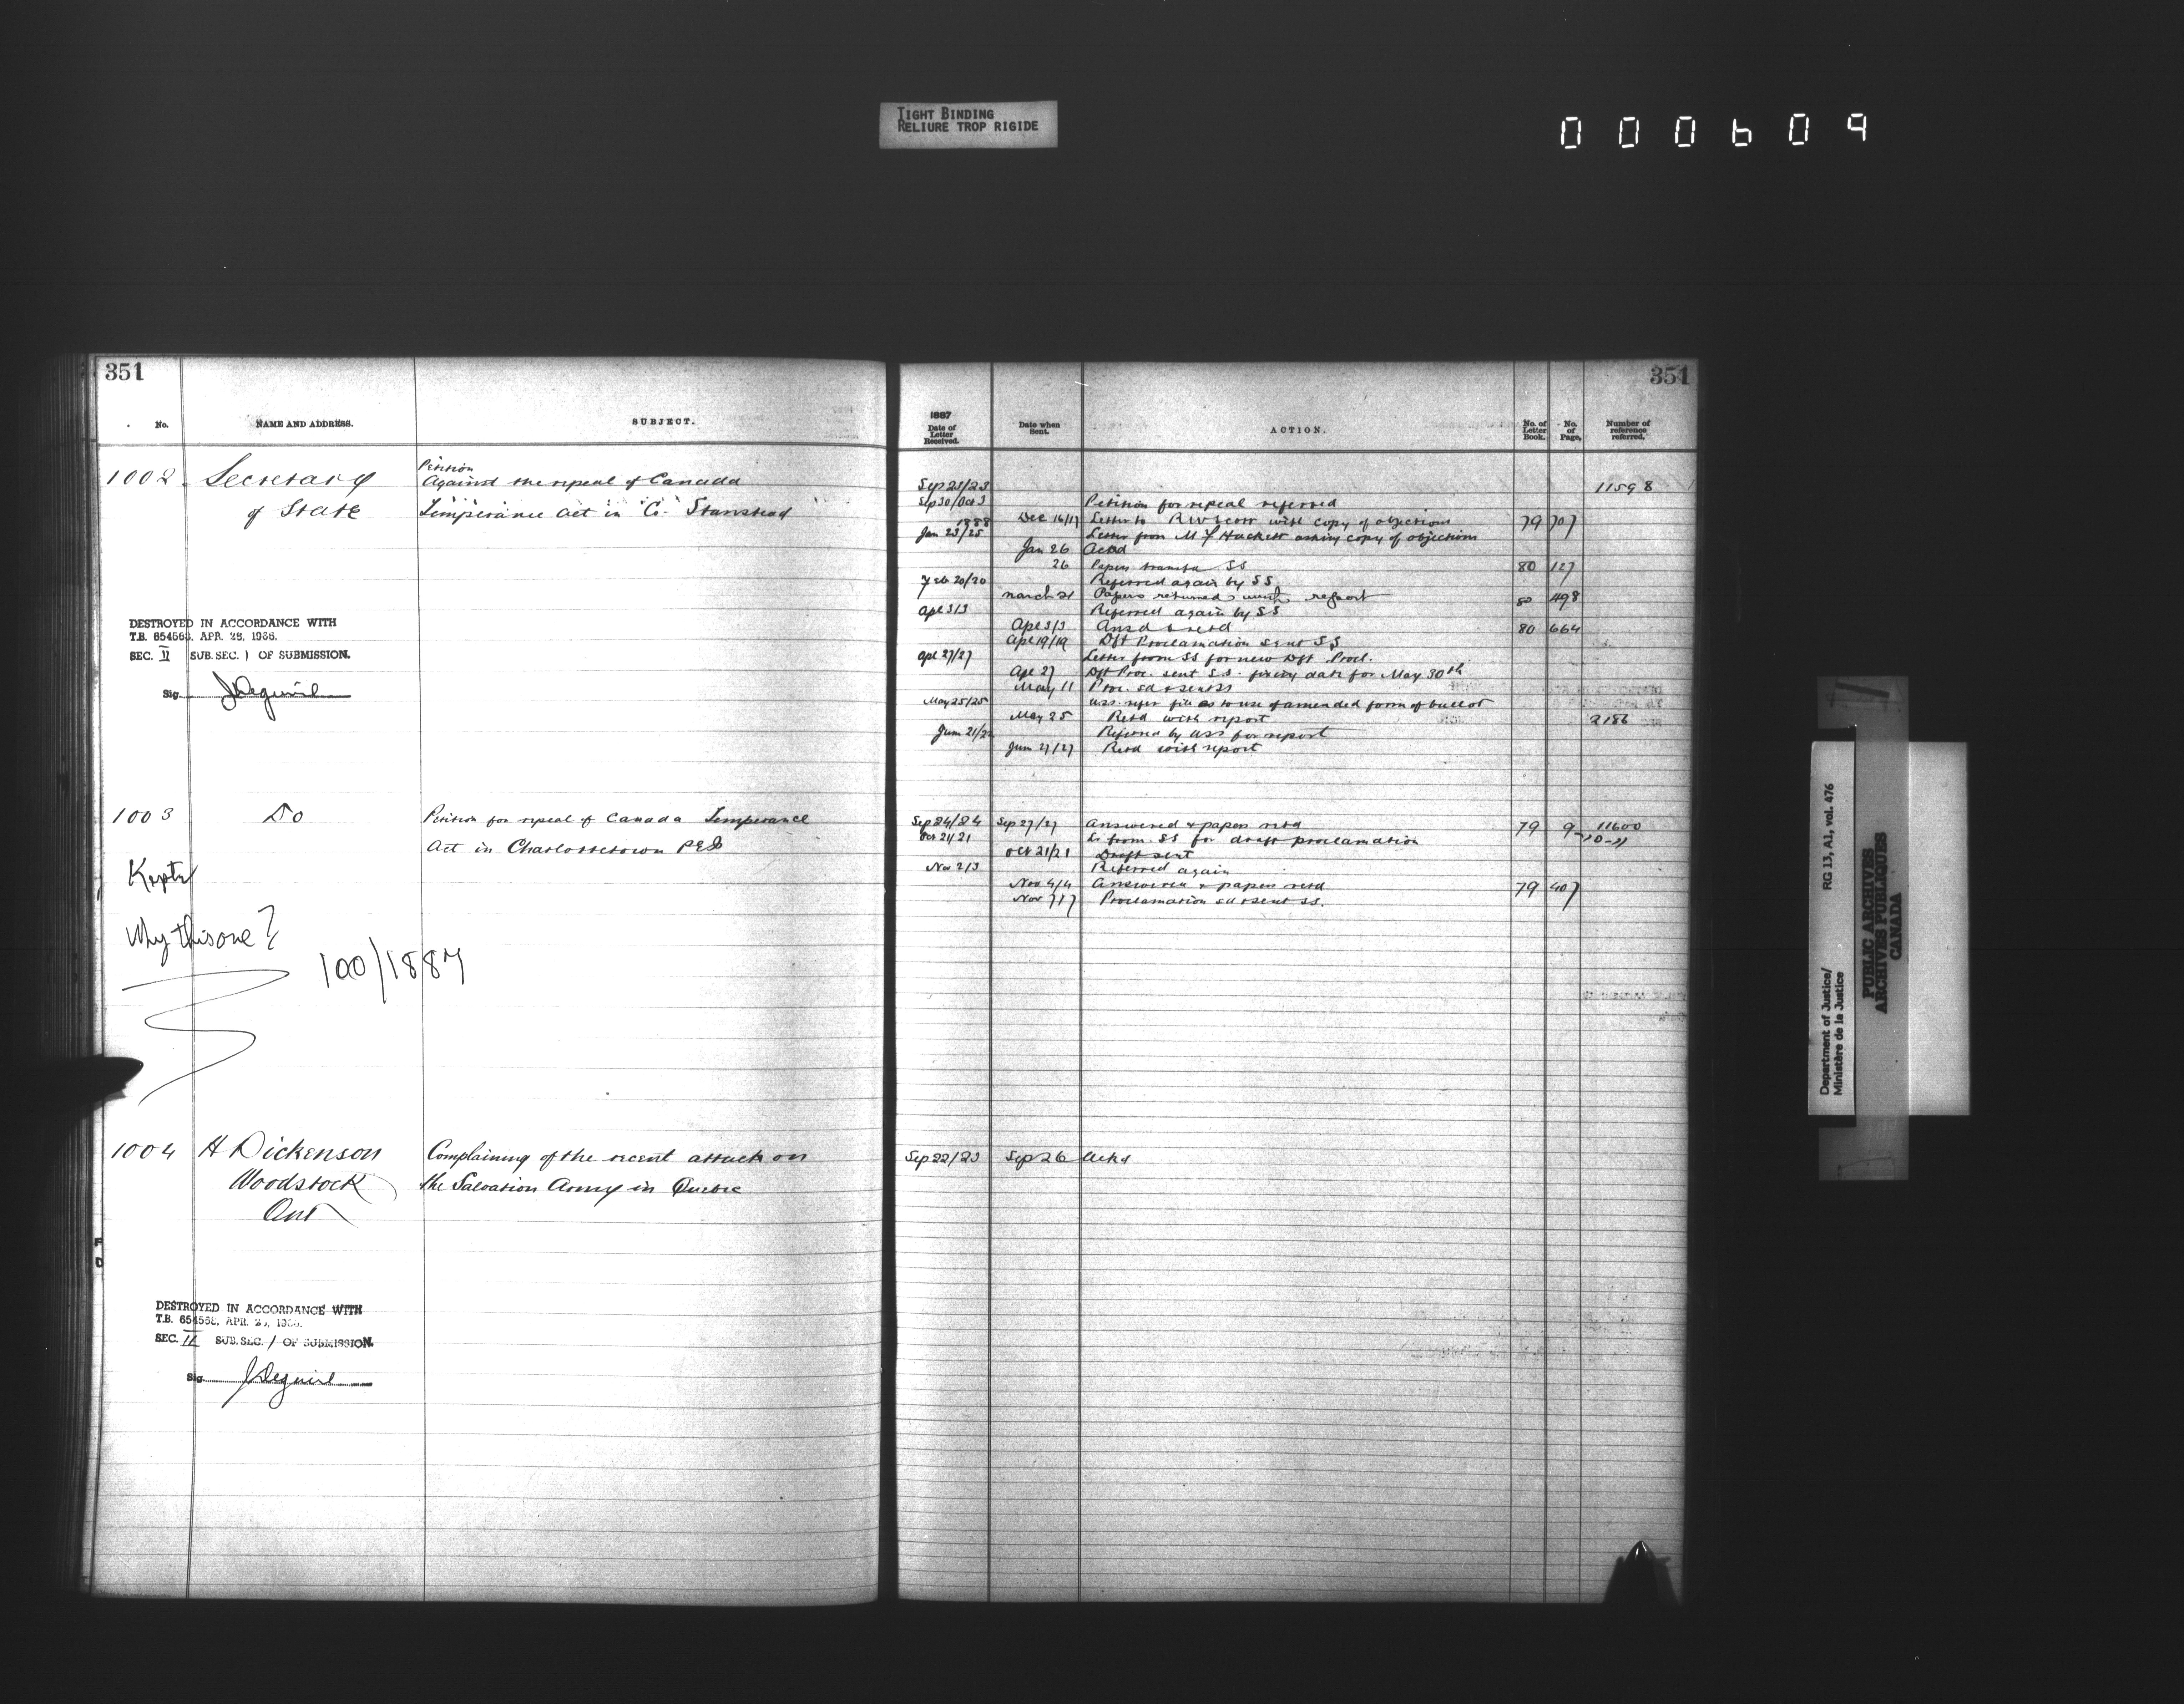 TIGHT BINDING
RELIURE TROP RIGIDE
000609
351
No. NAME AND ADDRESS. SUBJECT.
1002 Secretary Petition
Against the repeal of Canada
of State Temperance Act in Co. Stanstead
DESTROYED IN ACCORDANCE WITH
T.B. 654568, APR. 28, 1936.
SEC. II SUB. SEC. 1 OF SUBMISSION.
Sig.
1003 Do Petition for repeal of Canada Temperance
Act in Charlottetown PEI
Kept
Why this one?
100/1887
1004 H Dickenson Complaining of the recent attack on
Woodstock the Salvation Army in Quebec
Ont
DESTROYED IN ACCORDANCE WITH
T.B. 654568, APR. 28, 1936.
SEC. II SUB. SEC. 1 OF SUBMISSION.
Sig.
351
1887
Date of Letter Received. Date when Sent. ACTION. No. of Letter Book. No. of Page. Number of reference referred.
Sep 23/23 11598
Sep 30/Oct 3 Petition for repeal referred
Dec 16/17 Letter to R W Scott with copy of objections 79 707
1888
Jan 23/25 Letter from M F Hackett asking copy of objections
Jan 26 Ackd
26 Papers transfd SS 80 127
Feb 20/20 Referred again by SS
March 21 Papers returned with report 80 498
Apl 3/3 Referred again by SS
Apl 3/3 Ansd & retd 80 664
Apl 19/19 Dft Proclamation sent SS
Apl 27/27 Letter from SS for new Dft Procl.
Apl 27 Dft Proc. sent S.S. fixing date for May 30th
May 11 Proc. sd & sent SS
May 25/25 USS. refer file as to use of amended form of ballot
May 25 Retd with report 2186
June 21/22 Referred by USS for report
June 27/27 Retd with report
Sep 24/24 Sep 27/27 Answered & papers retd 79 9 11600
Oct 21/21 Lr from SS for draft proclamation
Oct 21/21 Draft sent
Nov 2/3 Referred again
Nov 4/4 Answered & papers retd 79 407
Nov 7/7 Proclamation sd & sent SS.
Sep 22/23 Sep 26 Ackd
Department of Justice/ RG 13, A1, vol. 476
Ministère de la Justice
PUBLIC ARCHIVES
ARCHIVES PUBLIQUES
CANADA